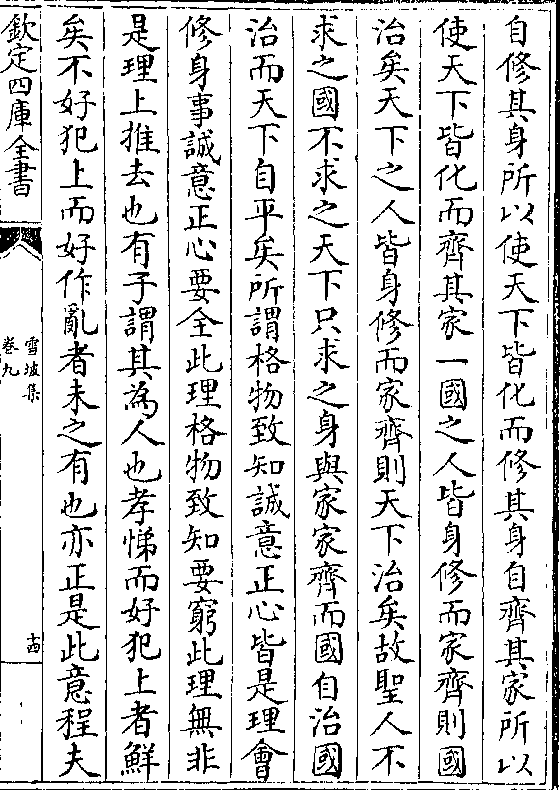 自修其身所以使天下皆化而修其身自齊其家所以
使天下皆化而齊其家一國之人皆身修而家齊則國
治矣天下之人皆身修而家齊則天下治矣故聖人不
求之國不求之天下只求之身與家家齊而國自治國
治而天下自平矣所謂格物致知誠意正心皆是理會
修身事誠意正心要全此理格物致知要窮此理無非
是理上推去也有子謂其為人也孝悌而好犯上者鮮
矣不好犯上而好作亂者未之有也亦正是此意程夫
欽定四庫全書
雪坡集
卷九
十四